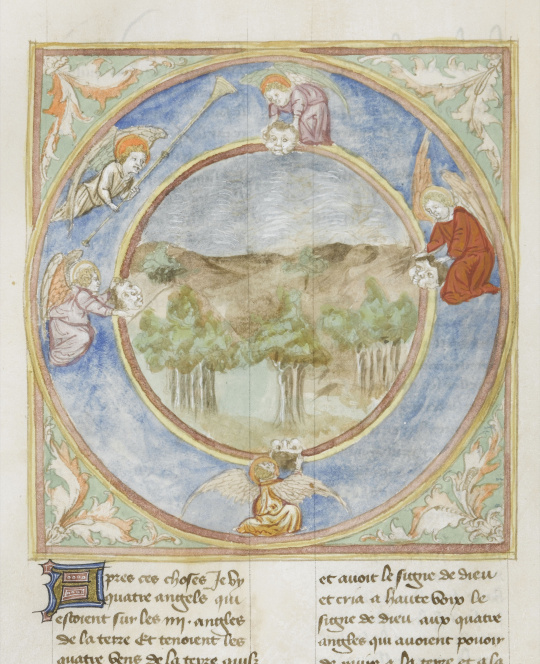 Apres ces choses Je vy
quatre angels qui
estoient sur les iiii. angles
de la terre Et tenoient les
quatre vens de la terre quilz
et auoit le signe de dieu
et cria a haulte voix le
signe de dieu aux quatre
angles qui auoient pouoir
de nuire a la terre et a la